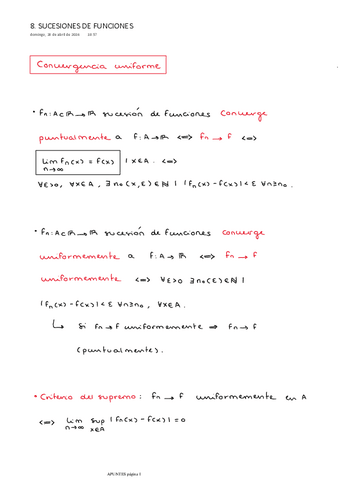 8. SUCESIONES DE FUNCIONES
Convergencia uniforme
• fn: A⊂ℝ→ℝ sucesión de funciones converge
puntualmente a f: A→ℝ <=> fn → f <=>
lim fn(x) = f(x) | x∈A. <=>
n→∞
∀ε>0, ∀x∈A, ∃ n₀(x,ε)∈ℕ | |fn(x) - f(x)| < ε ∀n≥n₀.
• fn: A⊂ℝ→ℝ sucesión de funciones converge
uniformemente a f: A→ℝ <=> fn → f
uniformemente <=> ∀ε>0 ∃n₀(ε)∈ℕ |
|fn(x) - f(x)| < ε ∀n≥n₀, ∀x∈A.
↳ Si fn→f uniformemente => fn→f
(puntualmente).
• Criterio del supremo: fn → f uniformemente en A
<=> lim sup |fn(x) - f(x)| = 0
n→∞ x∈A
APUNTES página 1